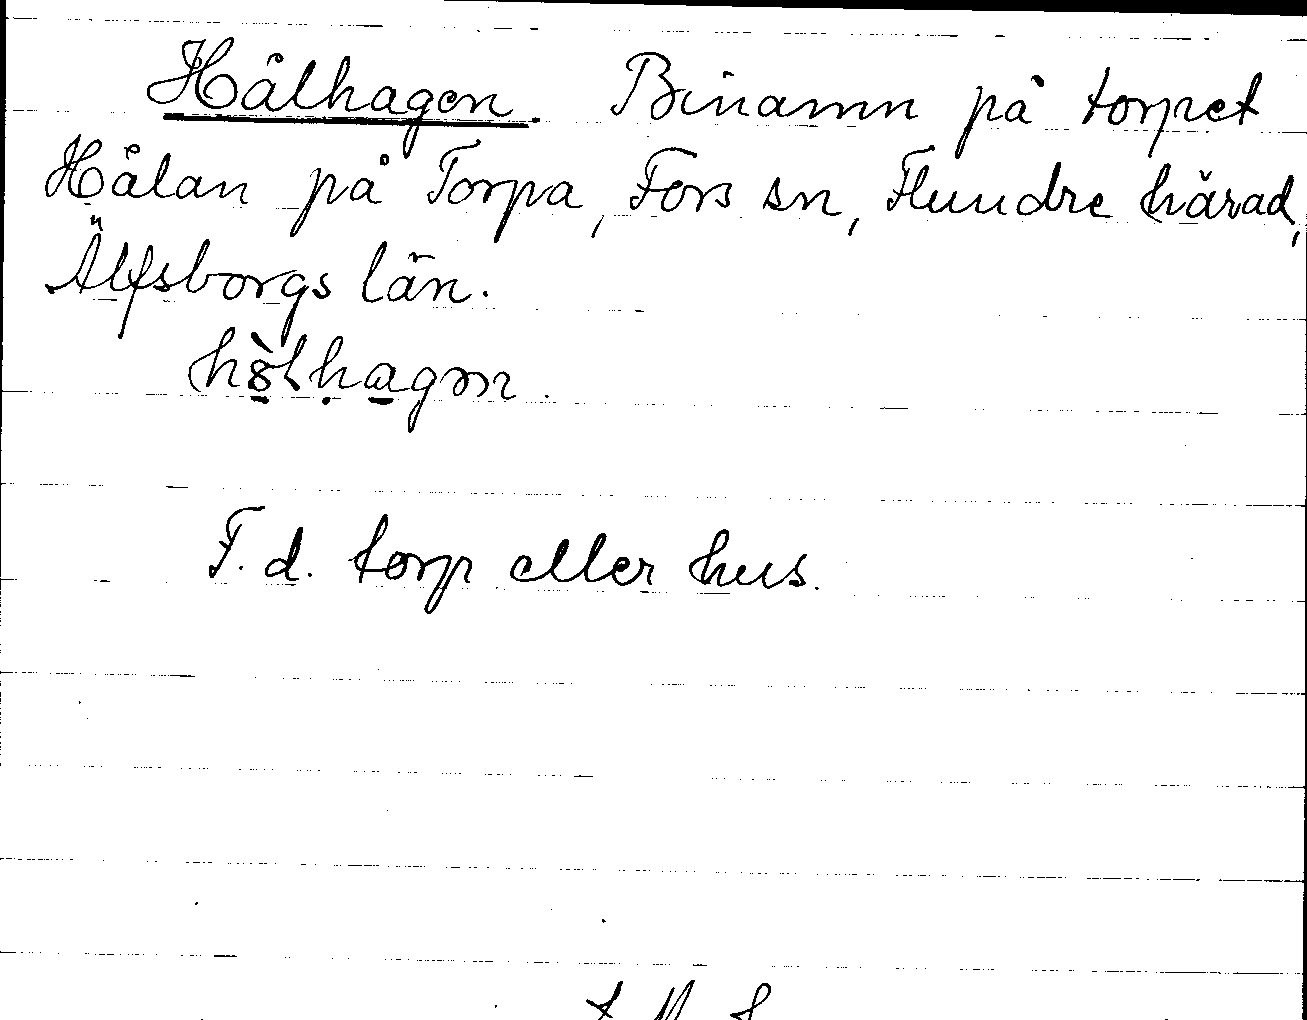 Hålhagen. Binamn på torpet
Hålan på Torpa, Fors sn, Flundre härad,
Älfsborgs län.
F.d. torp eller hus.